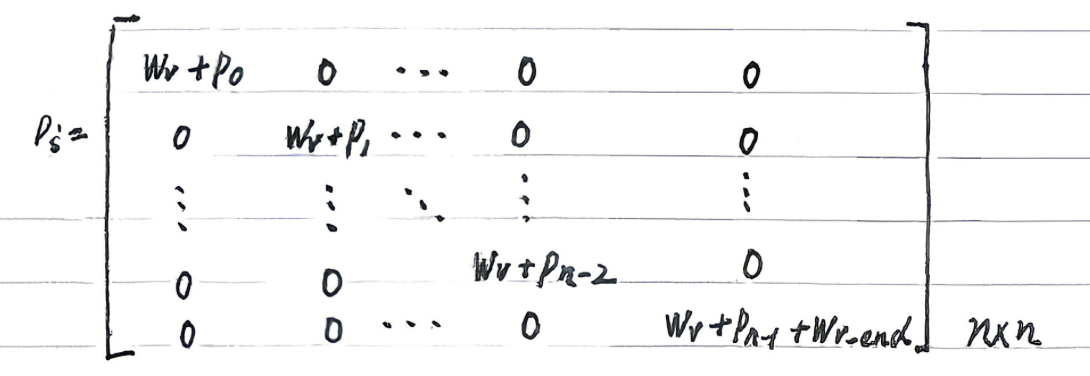 Wv+P0 0 ⋯ 0 0
Pṡ= 0 Wv+P1 ⋯ 0 0
⋮ ⋮ ⋱ ⋮ ⋮
0 0 Wv+Pn-2 0
0 0 ⋯ 0 Wv+Pn-1+Wv-end n×n